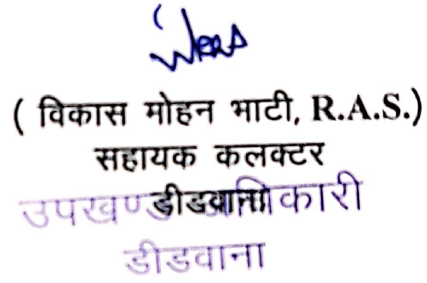 ( विकास मोहन भाटी, R.A.S.)
सहायक कलक्टर
डीडवाना
उपखण्ड अधिकारी
डीडवाना